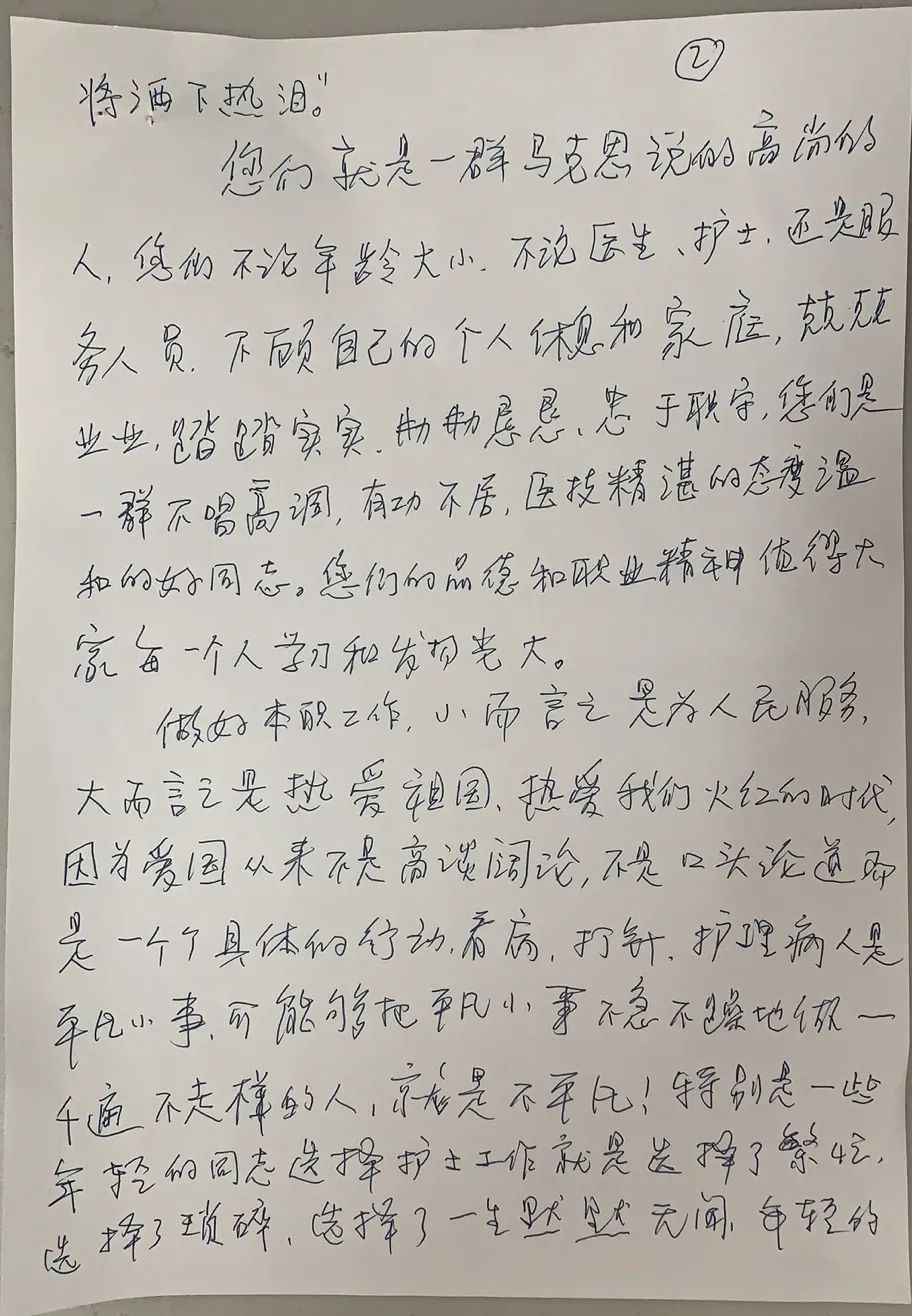 ②
将洒下热泪"。
您们就是一群马克思说的高尚的
人,您们不论年龄大小.不论医生、护士,还是服
务人员.不顾自己的个人休息和家庭,兢兢
业业,踏踏实实.勤勤恳恳、忠于职守,您们是
一群不唱高调,有功不居,医技精湛的态度温
和的好同志。您们的品德和职业精神值得大
家每一个人学习和发扬光大。
做好本职工作,小而言之是为人民服务,
大而言之是热爱祖国、热爱我们火红的时代,
因为爱国从来不是高谈阔论,不是口头论道而
是一个个具体的行动.看病,打针.护理病人是
平凡小事,可能够把平凡小事不急不躁地做一
千遍不走样的人,就是不平凡!特别是一些
年轻的同志选择护士工作就是选择了繁忙,
选择了琐碎,选择了一生默默无闻.年轻的